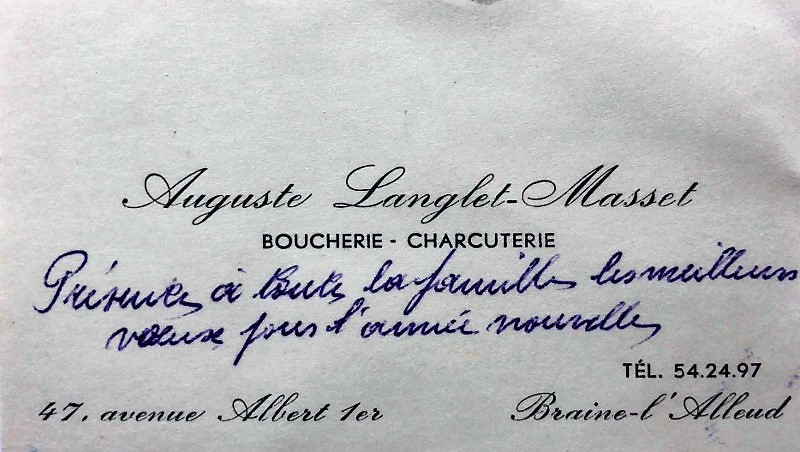 Auguste Langlet-Masset
BOUCHERIE - CHARCUTERIE
Présente à toute la famille les meilleurs
voeux pour l'année nouvelle
TÉL. 54.24.97
47, avenue Albert 1er
Braine-l'Alleud